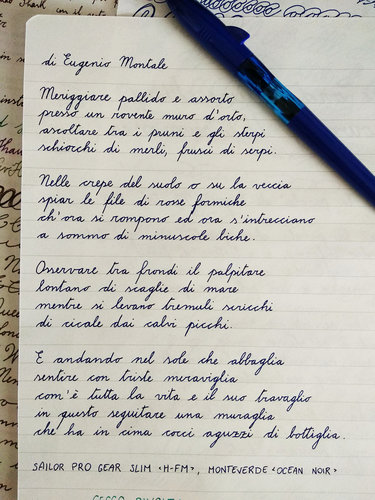 di Eugenio Montale
Meriggiare pallido e assorto
presso un rovente muro d'orto,
ascoltare tra i pruni e gli sterpi
schiocchi di merli, frusci di serpi.
Nelle crepe del suolo o su la veccia
spiar le file di rosse formiche
ch'ora si rompono ed ora s'intrecciano
a sommo di minuscole biche.
Osservare tra frondi il palpitare
lontano di scaglie di mare
mentre si levano tremuli scricchi
di cicale dai calvi picchi.
E andando nel sole che abbaglia
sentire con triste meraviglia
com'è tutta la vita e il suo travaglio
in questo seguitare una muraglia
che ha in cima cocci aguzzi di bottiglia.
SAILOR PRO GEAR SLIM <H-FM>, MONTEVERDE <OCEAN NOIR>